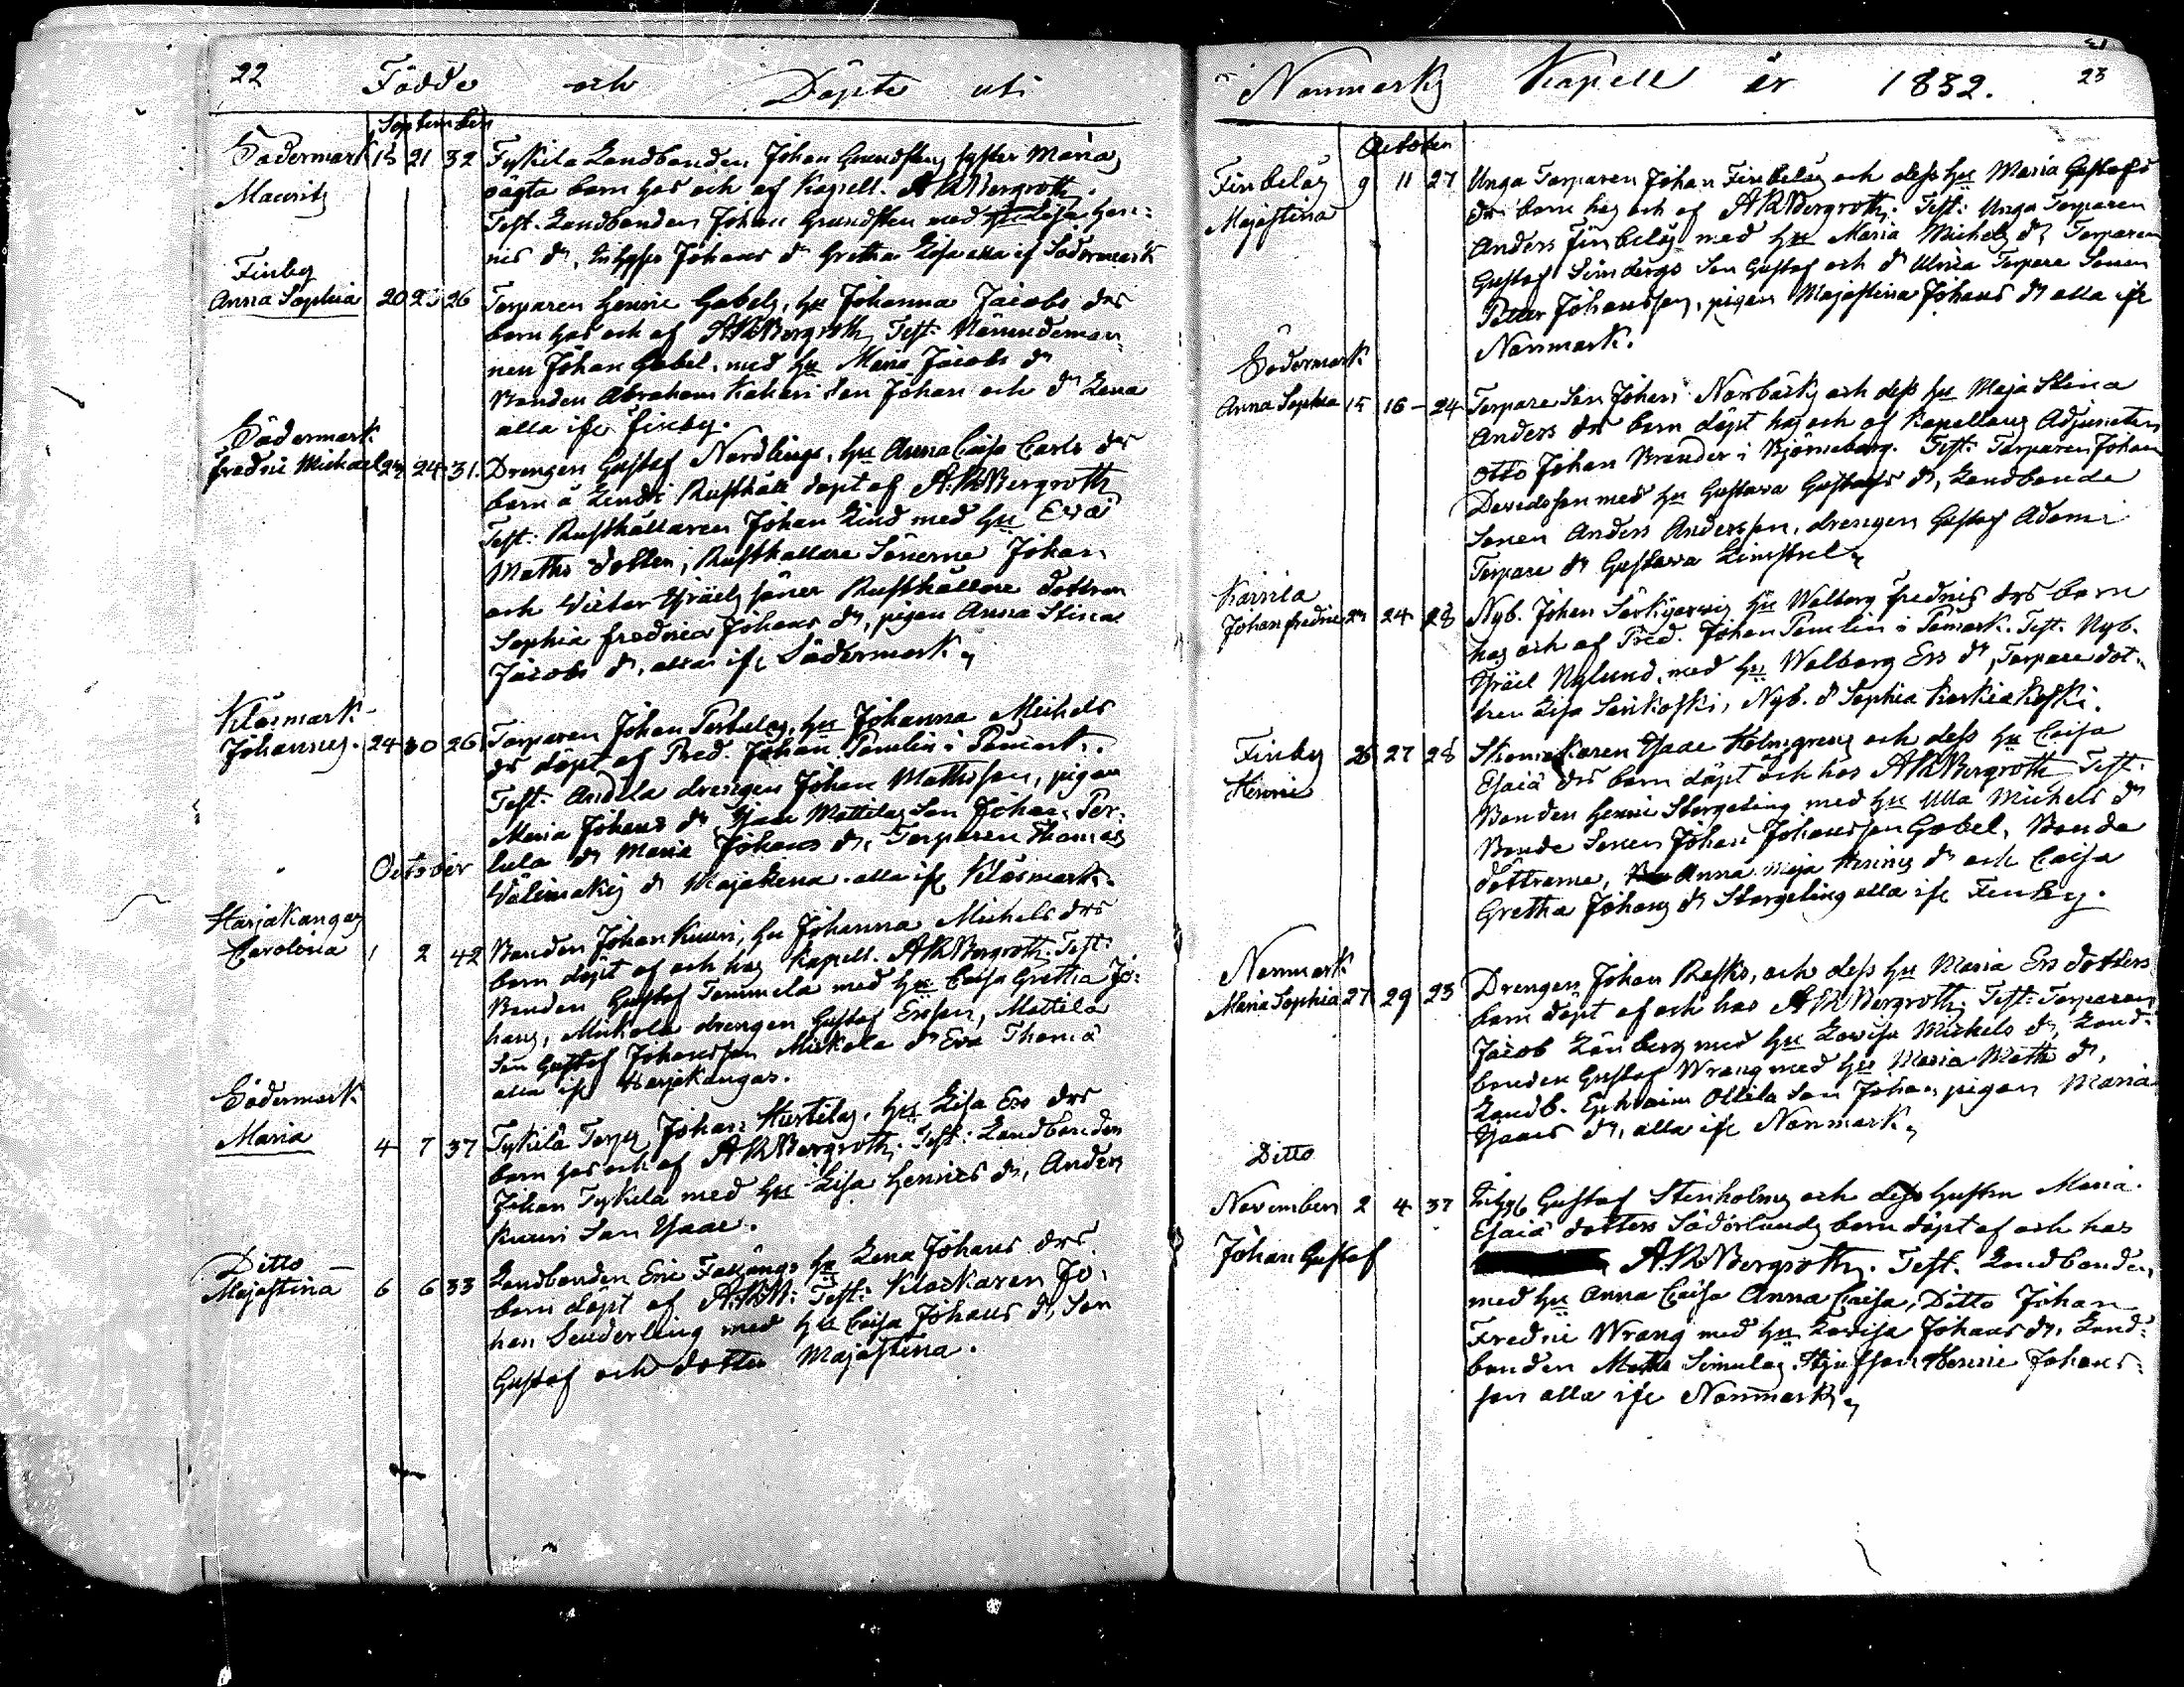 22 Födde och Döpte uti
September
Södermark 15 21 32 Tykila Landbonden Johan Grundstens syster Marias
Mauritz
oägta barn hos och af Kapell. A R Bergroth.
Test. Landbonden Johan Grundsten med hu Lisa Hen=
rics dr, Johans dr Gretha Lisa alla if Södermark
Finby
Anna Sophia 20 26 Torparen Henric Gabels, hu Johanna Jacobs drs
barn hos och af A R Bergroth Test: Nämndeman=
nen Johan Gabel, med hu Maria Jacobs dr
Bonden Abraham son Johan och dr Lena
alla ifr Finby.
Södermark
Fredric Michael 24 31. Drengen Gustaf Nordlings, hu Anna Caisa Carls drs
barn å Rusthåll döpt af A R Bergroth
Test: Rusthållaren Johan Lind med hu Eva
Matts dotter, Rusthållare Sönerne Johan
och Victor söner Rusthållare dottren
Sophia Fredrica Johans dr, pigan Anna Stina
Jacobs dr, alla ifr Södermark
Klåsmark
Johannes. 24 30 26 Torparen Johan hu Johanna Michels
dr döpt af Pred. Johan Pamlin i Påmark.
Test: Andila drengen Johan Mathsson, pigan
Maria Johans dr, Isaac Mattilas Son Johan, Per=
lula dr Maria Johans dr, Torparen Thomas
Välimäkis dr Maja Lena alla ifr Klåsmark.
October
Harjakangas
Carolina 1 2 42 Bonden Johan Knuuri, hu Johanna Michels drs
barn döpt af och hos Kapell. A R Bergroth. Test:
Bonden Gustaf Tommela med hu Caisa Gretha Jo=
hans, Mickola drengen Gustaf Ersson, Mattila
Son Gustaf Johansson Mickola dr Eva Thomæ
alla ifr Harjakangas.
Södermark
Maria 4 7 37 Tykilä Johan Hurtilas, hu Lisa Ers drs
barn hos och af A R Bergroth. Test: Landbonden
Johan Tykilä med hu Lisa Henrics dr, Anders
Knuuri Son Isaac.
Ditto
Majastina 6 6 33 Landbonden Eric hu Lena Johans drs
barn döpt af A R B: Test: Klockaren Jo=
han Senderling med hu Caisa Johans dr, Son
Gustaf och dotter Majastina.
Norrmarks Kapell år 1832. 23
October
Finbelas 9 11 27 Unga Torparen Johan Finbelas och dess hu Maria Gustafs
Majastina
drs barn hos och af A R Bergroth. Test: Unga Torparen
Anders Finbelas med hu Maria Michels dr, Torparen
Gustaf Limbergs Son Gustaf och dr Ulrica Torpare Sonen
Petter Johansson, pigan Majastina Johans dr alla ifr
Norrmark.
Södermark
Anna Sophia 15 16 - 24 Torpare Son Johan Norrbäcks och dess hu Maja Stina
Anders drs barn döpt hos och af Kapellans Adjuncten
Otto Johan Brander i Björneborg. Test: Torparen Johan
Davidsson med hu Gustava Gustafs dr, Landbonde
Sonen Anders Andersson, drengen Gustaf Adami
Torpare dr Gustava
Kärrila
Johan Fredric 23 24 28 Nyb. Johan Särkijärvis hu Walborg Fredrics drs barn
hos och af Pred. Johan Pamlin i Påmark. Test. Nyb.
Israel Nylund, med hu Walborg Ers dr, Torpare dot=
tren Lisa Nyb. dr Sophia
Finby 26 27 28 Skomakaren Isaac Holmgrens och dess hu Caisa
Henric
Esaiæ drs barn döpt och hos A R Bergroth Test.
Bonden Henric Storgeling med hu Ulla Michels dr
Bonde Sonen Johan Johansson Gabel, Bonde
döttrarne, Anna Maja Henrics dr och Caisa
Gretha Johans dr Storgeling alla ifr Finby.
Norrmark
Maria Sophia 27 29 23 Drengen Johan Rasks, och dess hu Maria Ers dotters
barn döpt af och hos A R Bergroth. Test: Torparen
Jacob Lönberg med hu Lovisa Michels dr, Land=
bonden Gustaf Wrang med hu Maria Matts dr,
Landb. Ephraim Ollila Son Johan, pigan Maria
Isaacs dr, alla ifr Norrmark
Ditto
November 2 4 37 Inhys Gustaf Stenholms och dess hustru Maria
Esaiæ dotters Söderlunds barn döpt af och hos
Johan Gustaf
A. R Bergroth. Test. Landbonden,
med hu Anna Caisa Anna Caisa, Ditto Johan
Fredric Wrang med hu Lovisa Johans dr, Land=
bonden Matts Simulas Henric Johans=
son alla ifr Norrmark